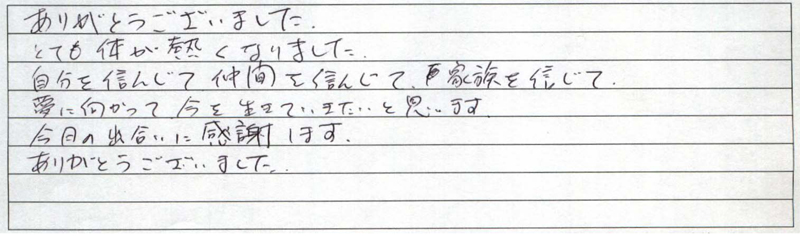 ありがとうございました。
とても体が熱くなりました。
自分を信んじて仲間を信んじて、家族を信じて。
夢に向かって今を生きていきたいと思います。
今日の出合いに感謝します。
ありがとうございました。